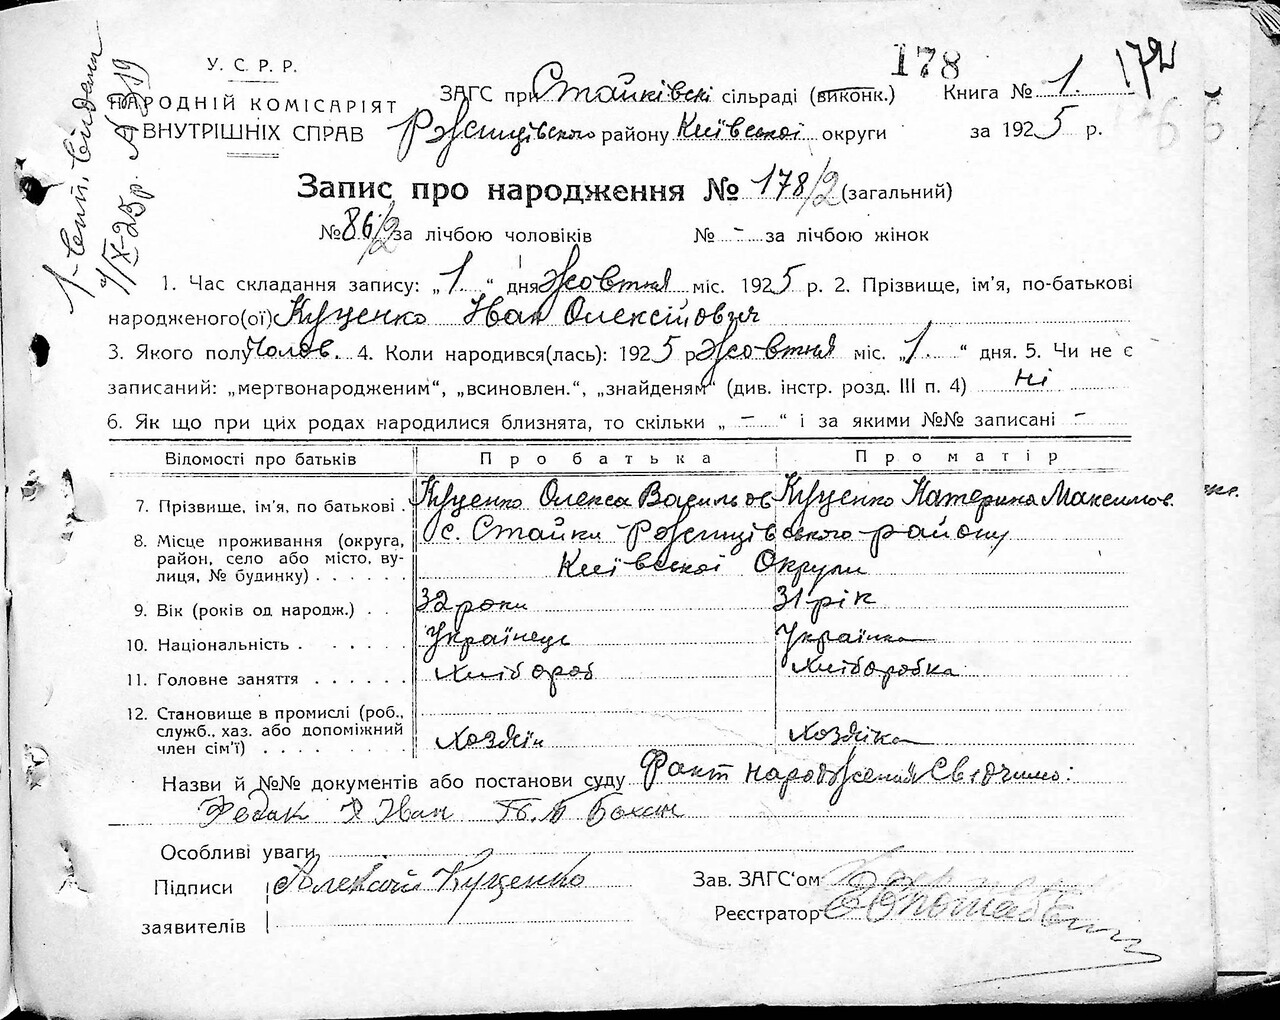 178 179
У. С. Р. Р.
НАРОДНІЙ КОМІСАРІЯТ
ВНУТРІШНІХ СПРАВ
ЗАГС при Стайківскі сільраді (виконк.) Книга № 1.
Ржищівського району Київської округи за 1925 р.
Запис про народження № 178/2 (загальний)
№ 86/2 за лічбою чоловіків № - за лічбою жінок
1. Час складання запису: „1.“ дня Жовтня міс. 1925 р. 2. Прізвище, ім'я, по-батькові
народженого(ої) Куценко Иван Олексійович
3. Якого полу Чолов. 4. Коли народився(лась): 1925 р. Жовтня міс. „1.“ дня. 5. Чи не є
записаний: „мертвонародженим“, „всиновлен.“, „знайденям“ (див. інстр. розд. III п. 4) ні
6. Як що при цих родах народилися близнята, то скільки „-“ і за якими №№ записані -
Відомості про батьків Про батька Про матір
7. Прізвище, ім'я, по батькові . Куценко Олекса Васильов Куценко Катерина Максимов.
8. Місце проживання (округа, район, село або місто, вулиця, № будинку) . . . . . . с. Стайки Ржищівського району
Київської Округи
9. Вік (років од народж.) . . 32 роки 31 рік
10. Національність . . . . . . Українець Українка
11. Головне заняття . . . . . . Хлібороб Хліборобка
12. Становище в промислі (роб.,
служб., хаз. або допоміжний
член сім'ї) . . . . . . . . . Хозяїн Хозяїка
Назви й №№ документів або постанови суду Факт народження Свідчимо:
Иван
Особливі уваги
Підписи Алексій Куценко Зав. ЗАГС'ом
заявителів Реєстратор